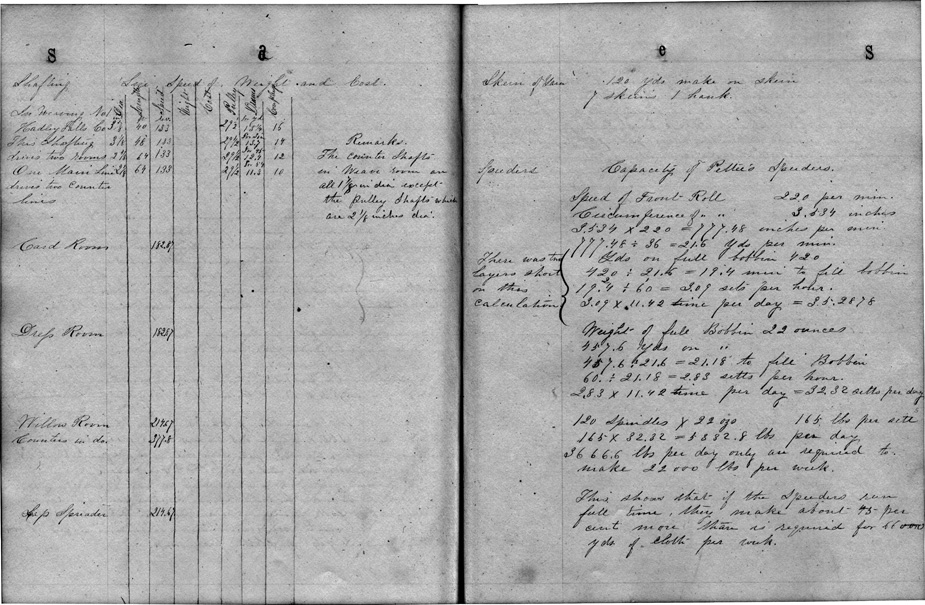 S a
Shafting Size Speed of Weight and Cost.
Dia Length Speed Weight Cost Pulley Coupling
For Weaving No 1
Hadley Falls Co 3 40 133 15
This Shafting 3 48 133 14
drives two rooms 64 133 12
One Main Line 64 133 10
drives two Counter
lines
Remarks.
The counter Shafts
in Weave room are
all 1 in dia except
the pulley Shafts which
are 2 1/8 inches dia.
Card Room 182.87
Dress Room 182.87
Willow Room 214.67
Counters in do 277.8
Lap Spreader 214.67
e s
Skein of Yarn 120 yds make on skein
7 skeins 1 hank.
Speeders Capacity of Pettie's Speeders.
Speed of Front Roll 220 per min.
Circumference of " " 3.534 inches
3.534 x 220 = 777.48 inches per min
777.48 ÷ 36 = 21.6 yds per min.
There was two
layers short
on this
calculation
Yds on full bobbin 420
420 ÷ 21.6 = 19.4 min to fill bobbin
19.4 ÷ 60 = 3.09 sets per hour.
3.09 x 11.42 time per day = 35.2878
Weight of full Bobbin 22 ounces
457.6 Yds on "
457.6 ÷ 21.6 = 21.18 to fill Bobbin
60. ÷ 21.18 = 2.83 setts per hour.
2.83 x 11.42 time per day = 32.32 setts per day
120 Spindles x 22 ozs 165 lbs per sett
165 x 32.32 = 5332.8 lbs per day
3666.6 lbs per day only are required to
make 22000 lbs per week.
This shows that if the Speeders run
full time, they make about 45 per
cent more than is required for 66000
yds of cloth per week.